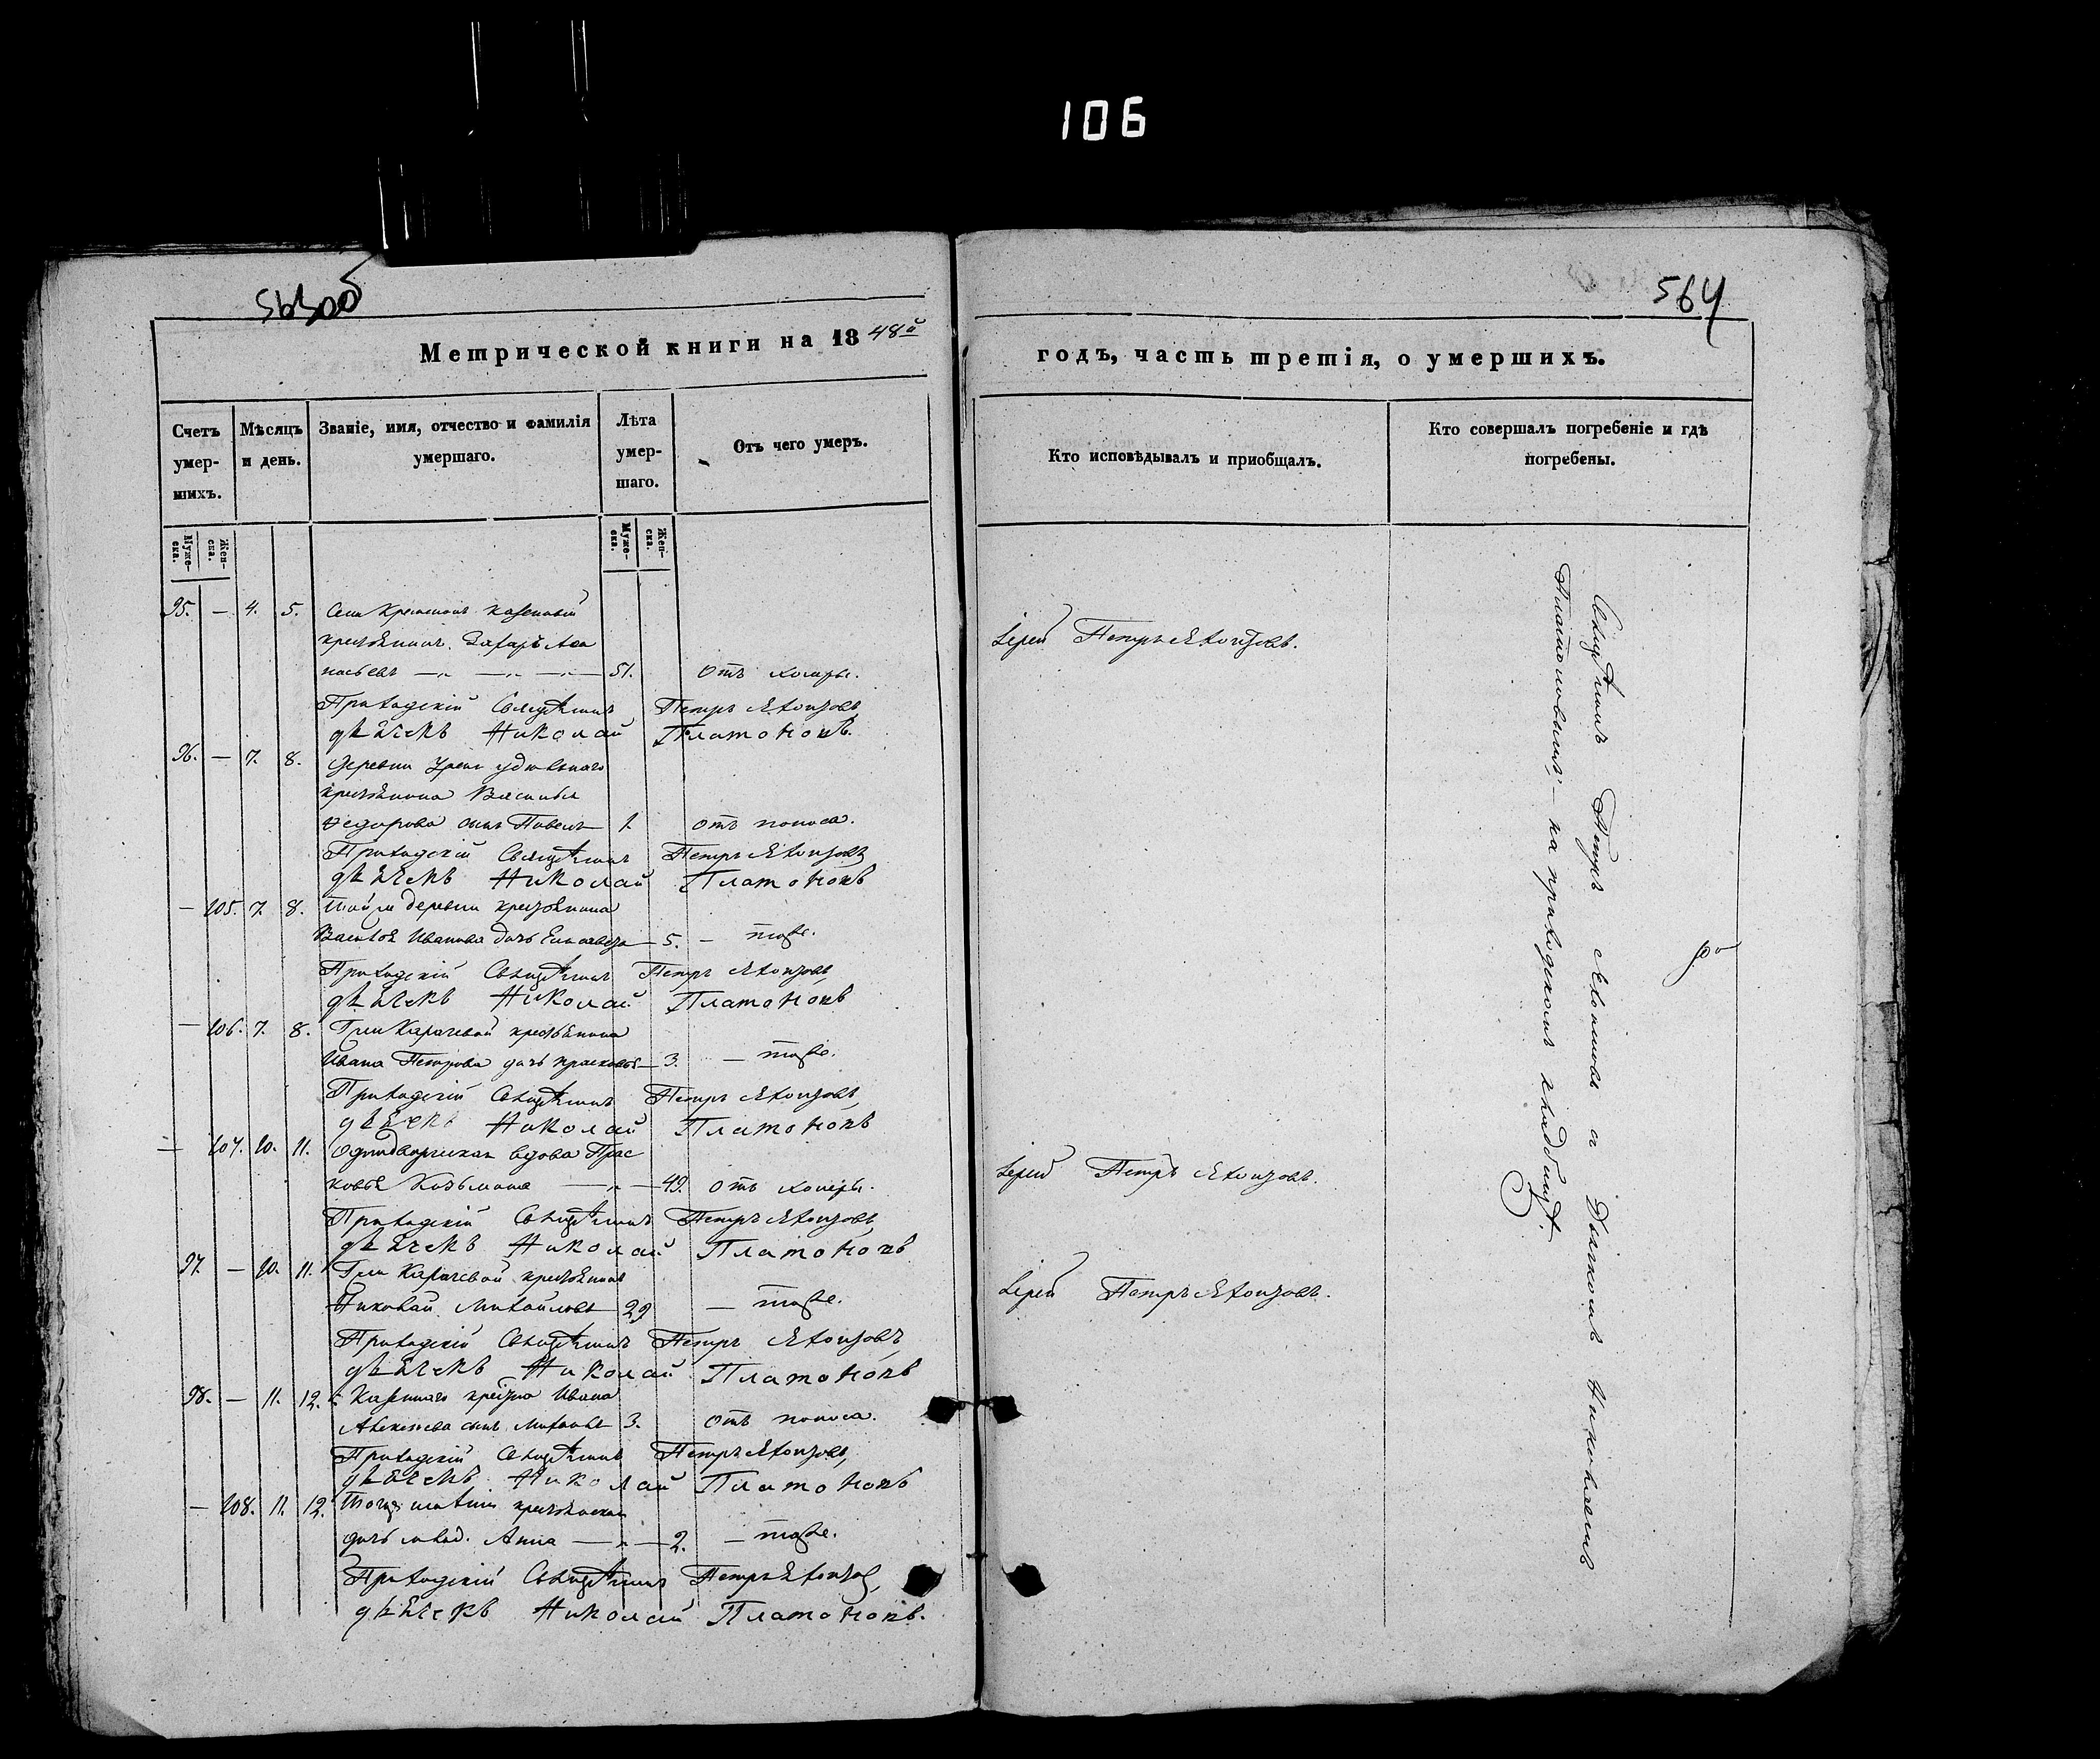 106
564
Метрической книги на 1848й
годъ, часть третія, о умершихъ.
Счетъ умер-шихъ.
Мѣсяцъ и день.
Званіе, имя, отчество и фамилія умершаго.
Лѣта умер-шаго.
Отъ чего умеръ.
Кто исповѣдывалъ и пріобщалъ.
Кто совершалъ погребеніе и гдѣ погребены.
Муже-ска.
Жен-ска.
Муже-ска.
Жен-ска.
95. — 4. 5. Села казенный
крестьянинъ Захаръ Афа
насьевъ — „ — „ — „ — 51. отъ холеры.
Іерей Петръ
Приходскій Священникъ Петръ
дьячекъ Николай Платоновъ.
96. — 7. 8. Деревни удѣльнаго
крестьянина Василья
Федорова сынъ Павелъ 1. отъ поноса.
Приходскій Священникъ Петръ
дьячекъ Николай Платоновъ
— 105. 7. 8. Той же деревни крестьянина
Василья Иванова дочь Елисавета — 5. — тоже.
Приходскій Священникъ Петръ
дьячекъ Николай Платоновъ
— 106. 7. 8. Карачевой крестьянина
Ивана Петрова дочь Прасковья — 3. — тоже.
Приходскій Священникъ Петръ
дьячекъ Николай Платоновъ
— 107. 10. 11. Однодворческая вдова Прас
ковья Козьмина — „ — 49. отъ холеры.
Іерей Петръ
Приходскій Священникъ Петръ
дьячекъ Николай Платоновъ
97. — 10. 11. Карачевой крестьянинъ
Николай Михайловъ 29 — тоже.
Іерей Петръ
Приходскій Священникъ Петръ
дьячекъ Николай Платоновъ
98. — 11. 12. Казеннаго Ивана
Алексѣева сынъ 3. отъ поноса.
Приходскій Священникъ Петръ
дьячекъ Николай Платоновъ
— 108. 11. 12. крестьянская
дочь Анна — „ — 2. — тоже.
Приходскій Священникъ Петръ
дьячекъ Николай Платоновъ.
Священникъ Петръ съ Дьячкомъ Николаемъ
Платоновымъ, — на приходскомъ кладбищѣ.